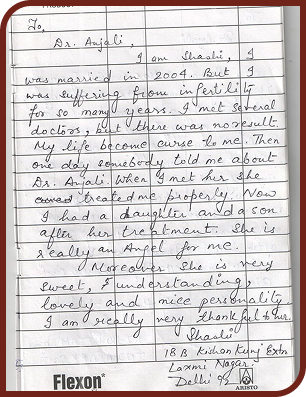 To,
Dr. Anjali,
I am Shashi, I
was married in 2004. But I
was suffering from infertility
for so many years. I met several
doctors, but there was no result.
My life become curse to me. Then
one day somebody told me about
Dr. Anjali. When I met her she
treated me properly. Now
I had a daughter and a son
after her treatment. She is
really an Angel for me.
Moreover she is very
sweet, & understanding,
lovely and nice personality
I am really very thankful to her.
Shashi
18 B Kishan Kunj Extn
Laxmi Nagar
Delhi 92
Flexon
ARISTO